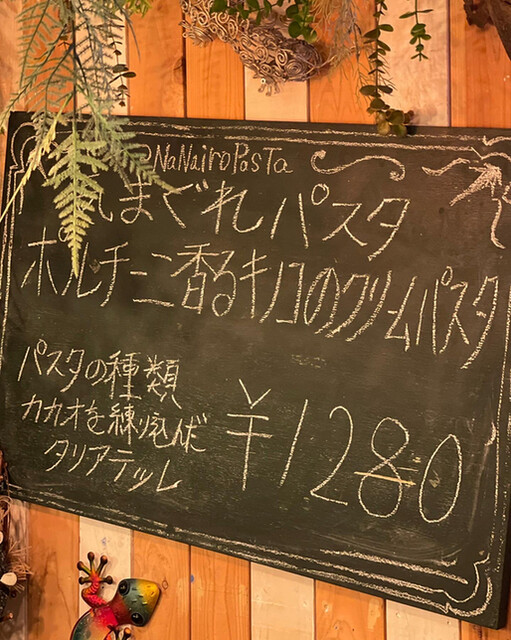 NaNairoPaSTa
気まぐれパスタ
ポルチーニ香るキノコのクリームパスタ
パスタの種類
カカオを練り込んだ
タリアテッレ
¥1280